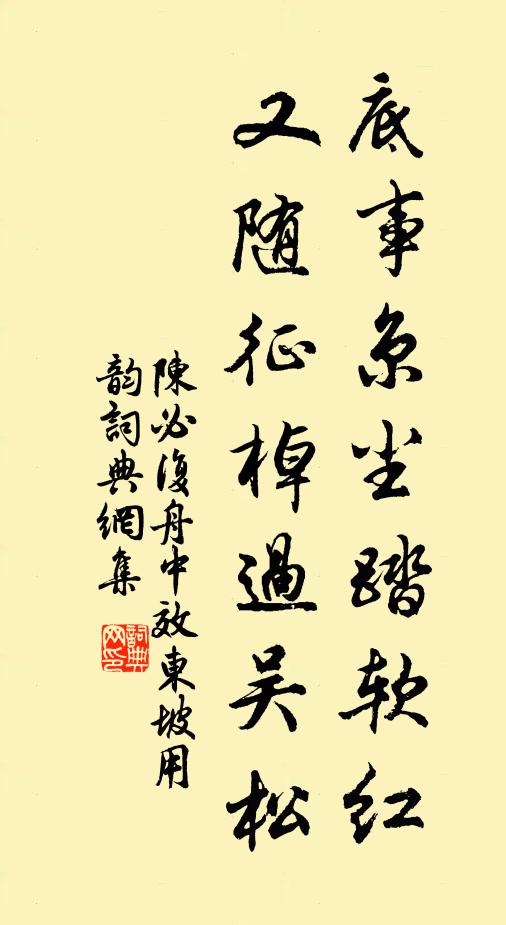 底事京尘踏软红
又随征棹過吴松
陳必復舟中效東坡用
韵詞典網集
詞典
网印